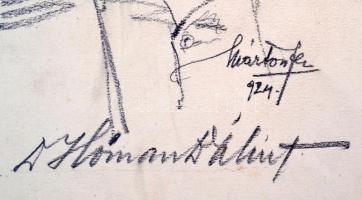 Márton Fer
924.
Dr Hóman Bálint